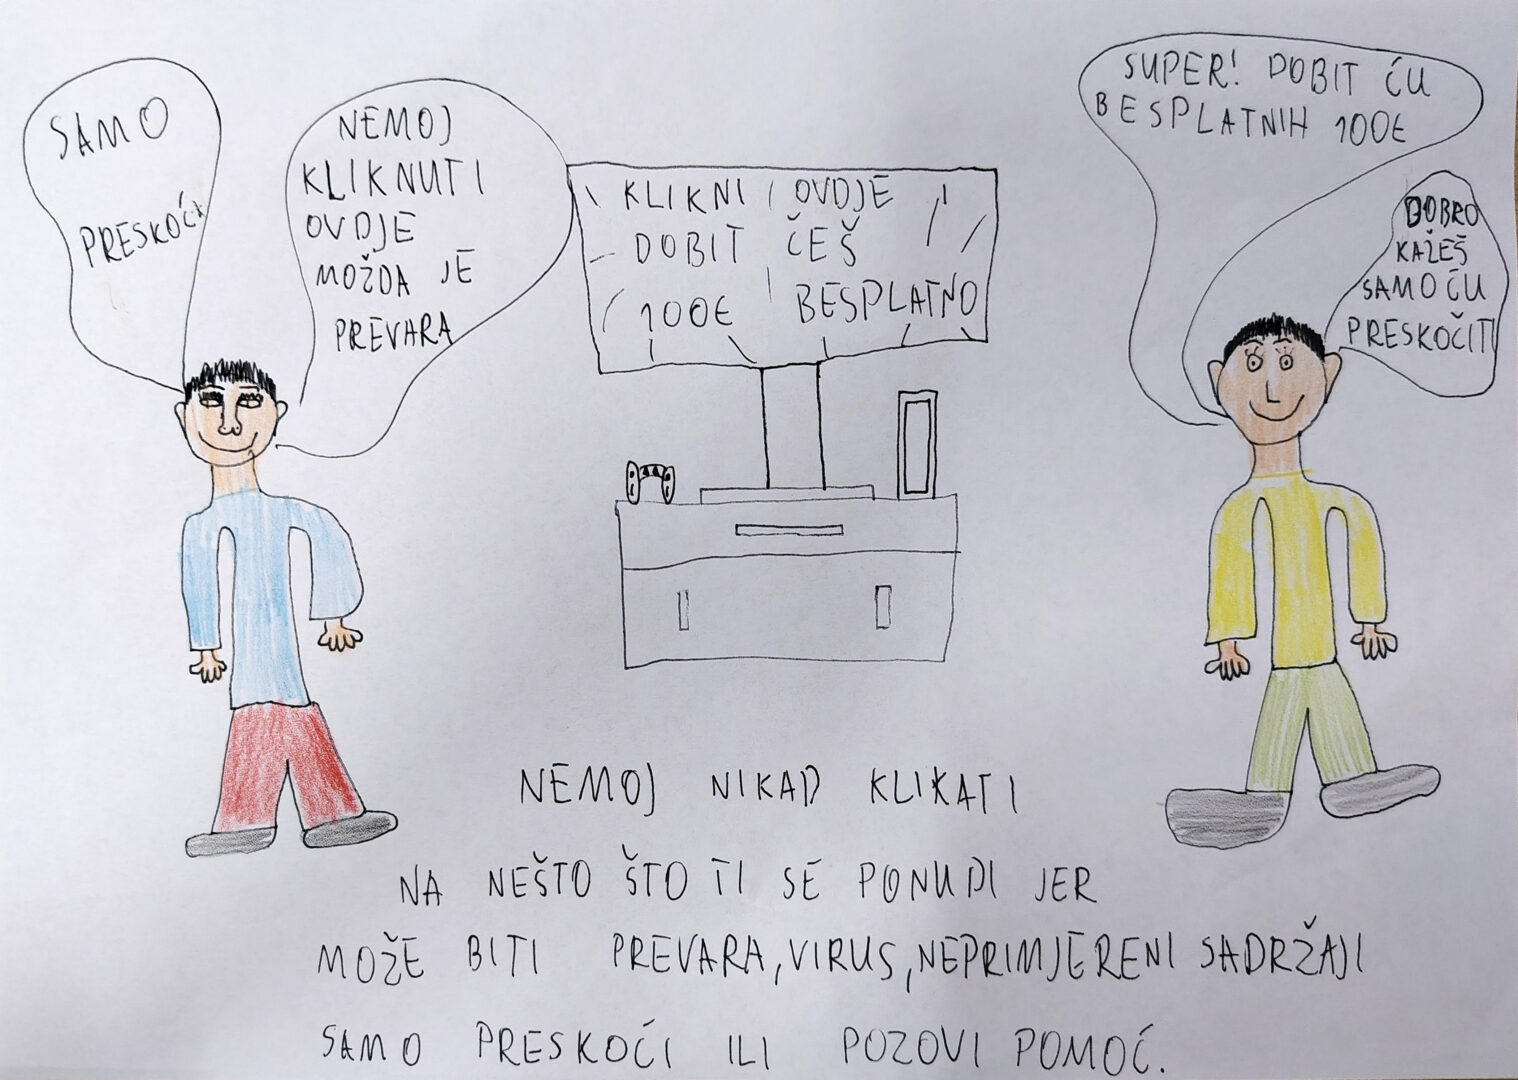 SAMO
PRESKOĆI
NEMOJ
KLIKNUTI
OVDJE
MOŽDA JE
PREVARA
KLIKNI OVDJE
DOBIT ĆEŠ
100€ BESPLATNO
SUPER! DOBIT ĆU
BESPLATNIH 100€
DOBRO
KAŽEŠ
SAMO ĆU
PRESKOČITI
NEMOJ NIKAD KLIKATI
NA NEŠTO ŠTO TI SE PONUDI JER
MOŽE BITI PREVARA, VIRUS, NEPRIMJERENI SADRŽAJI
SAMO PRESKOĆI ILI POZOVI POMOĆ.